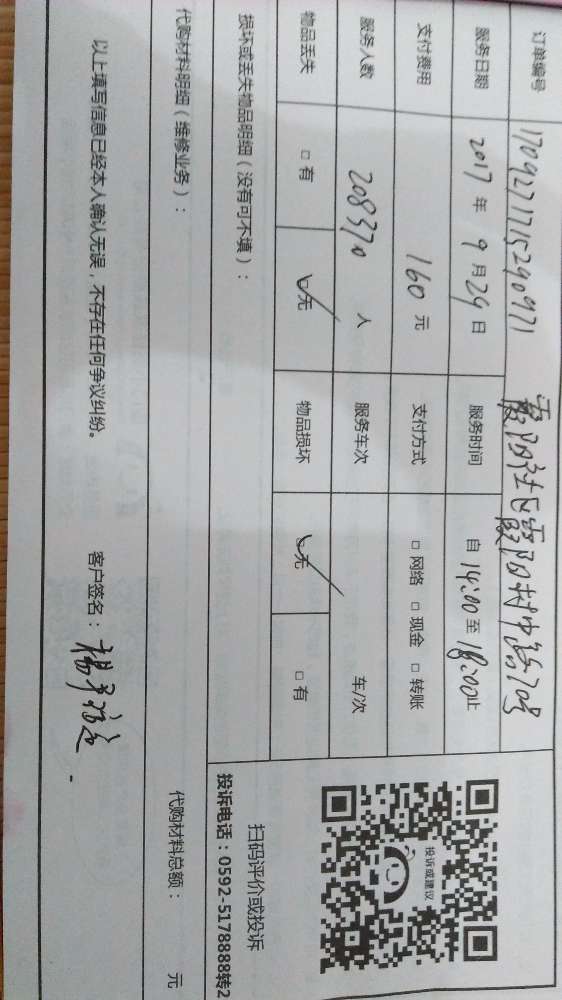 订单编号 170927171529097​1 霞阳社区霞阳村中路70号
服务日期 2017 年 9 月 29 日 服务时间 自 14:00 至 18:00止
支付费用 160 元 支付方式 □ 网络 □ 现金 □ 转账
服务人数 208370 人 服务车次 车/次
物品丢失 □ 有 ☑无 物品损坏 ☑无 □ 有
损坏或丢失物品明细（没有可不填）：
代购材料明细（维修业务）： 代购材料总额： 元
以上填写信息已经本人确认无误，不存在任何争议纠纷。 客户签名：
投诉或建议
扫码评价或投诉
投诉电话：0592-5178888转2